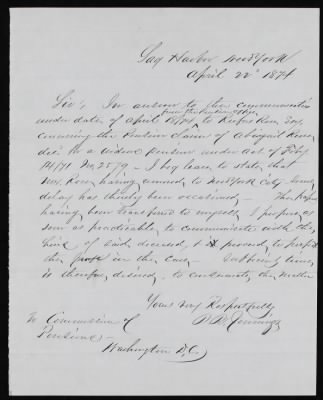 Sag Harbor New York
April 22d 1874
Sir; In answer to the communication
from the Pension Office
under date of April 18/74, to Rufus Rose, Esq,
concerning the Pension claim of Abigail Rose,
decd as a widow pensioner under act of Feby
14/71 No, 2579 - I beg leave to state, that
Mr, Rose having removed to New York City some
delay has thereby been occasioned - The papers
having been transferred to myself, I propose, as
soon as practicable, to communicate with the
heirs of said deceased, & to proceed to perfect
the proofs in the case - Sufficient time
is therefore, desired, to consummate the matter
Yours very Respectfully
To Commissioner of
Pensions -
Washington D, C,